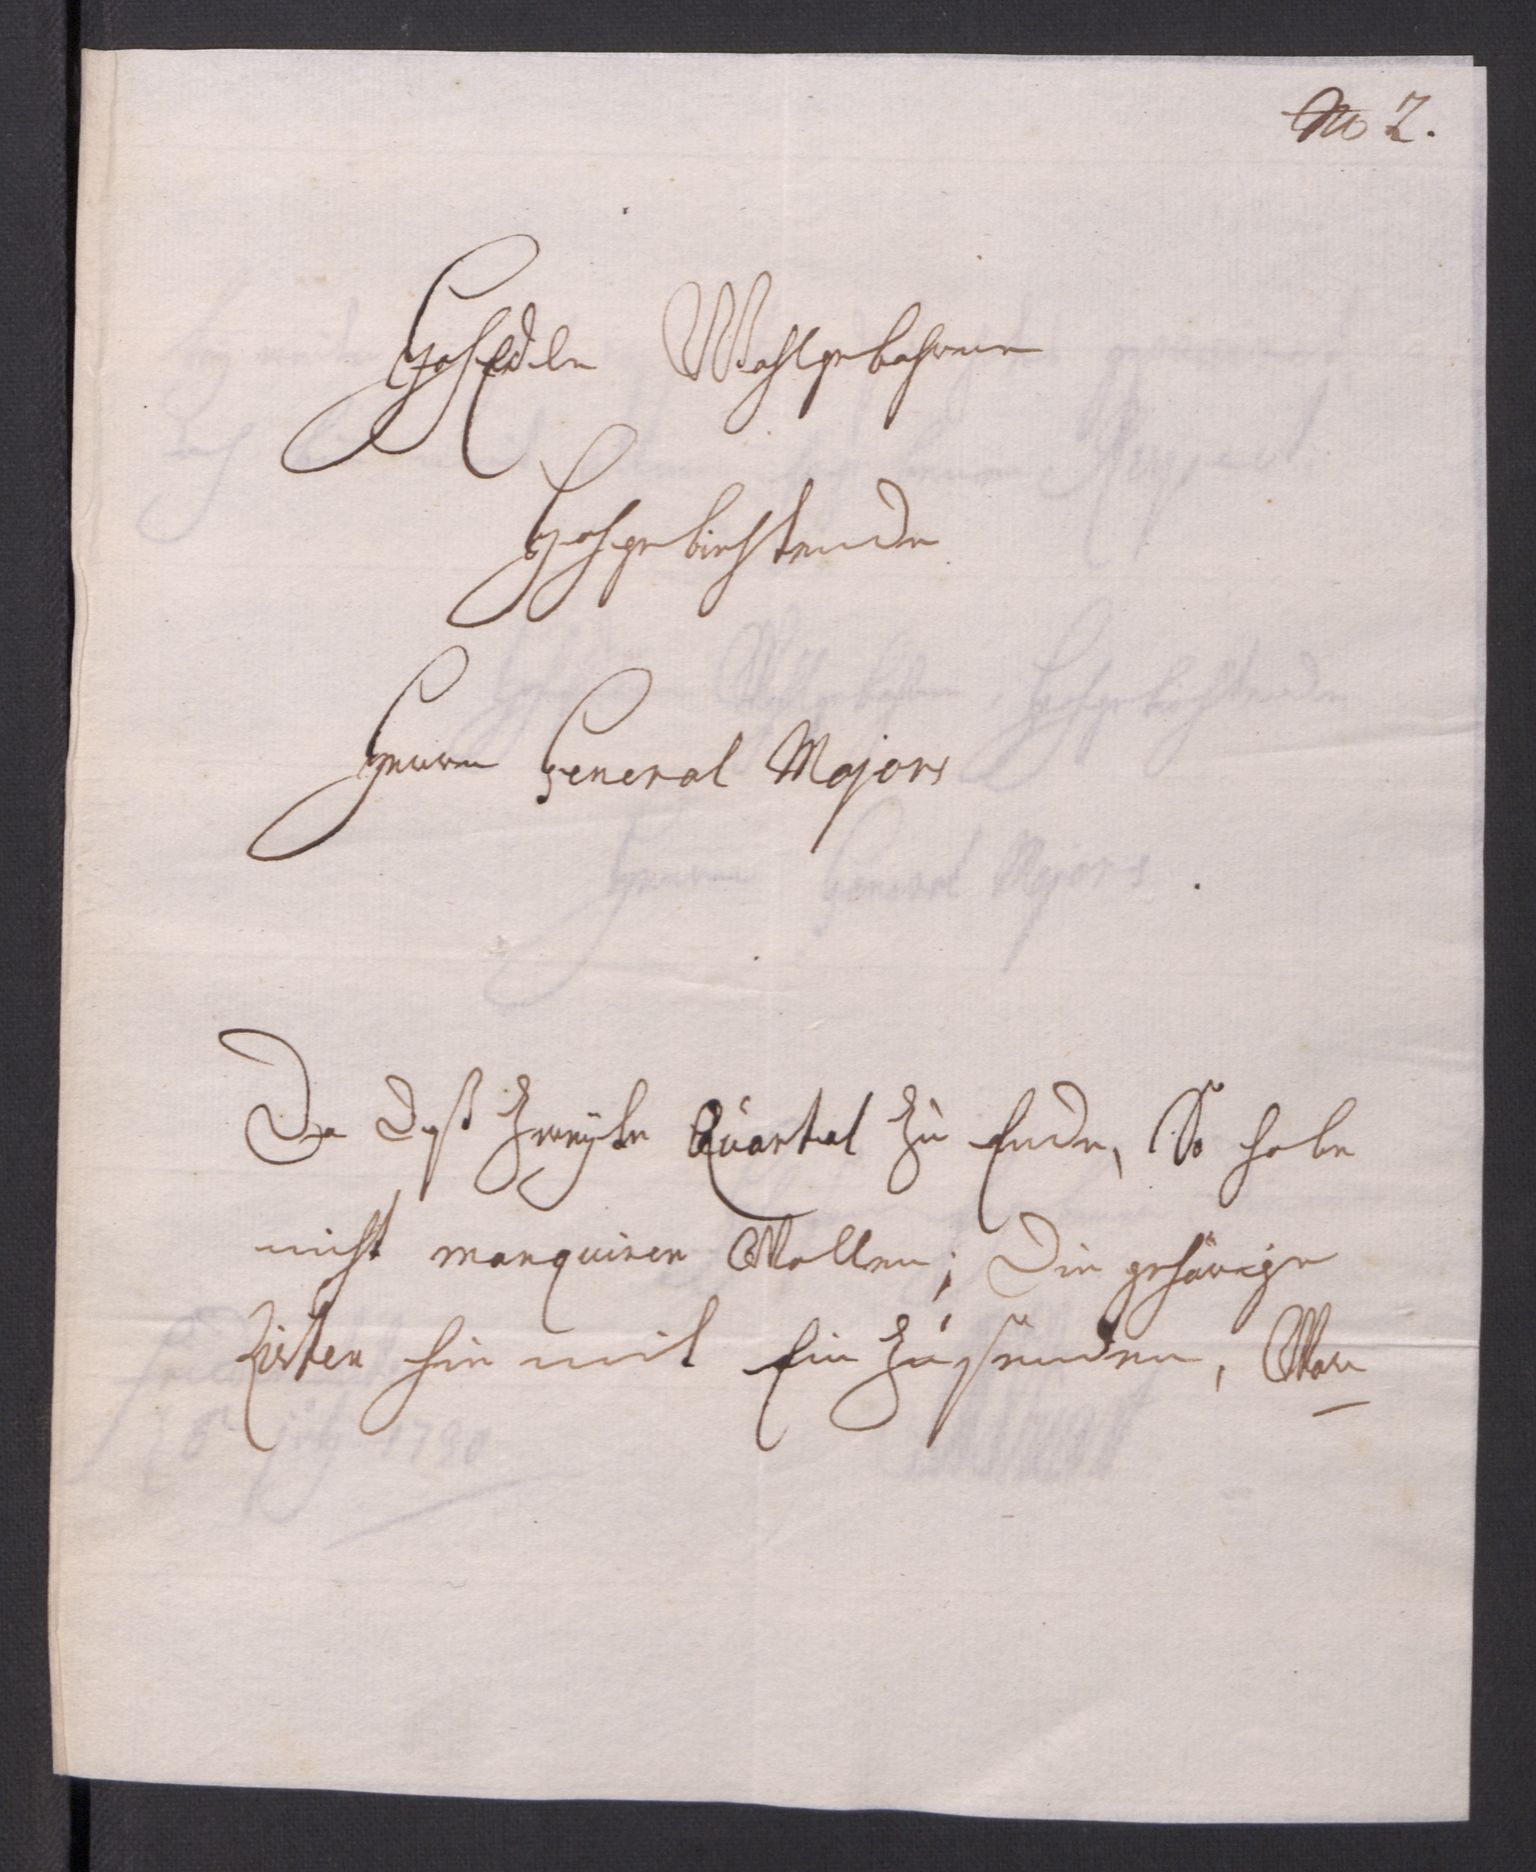 No 2.
HochEdle Wohlgebohrne
Hochgebiehtende
Herren General Majors
Da daß zweyte Quartal zu Ende, So habe
nicht manquiren Wollen; Die gehörige
Listen hie mit Ein zu senden,